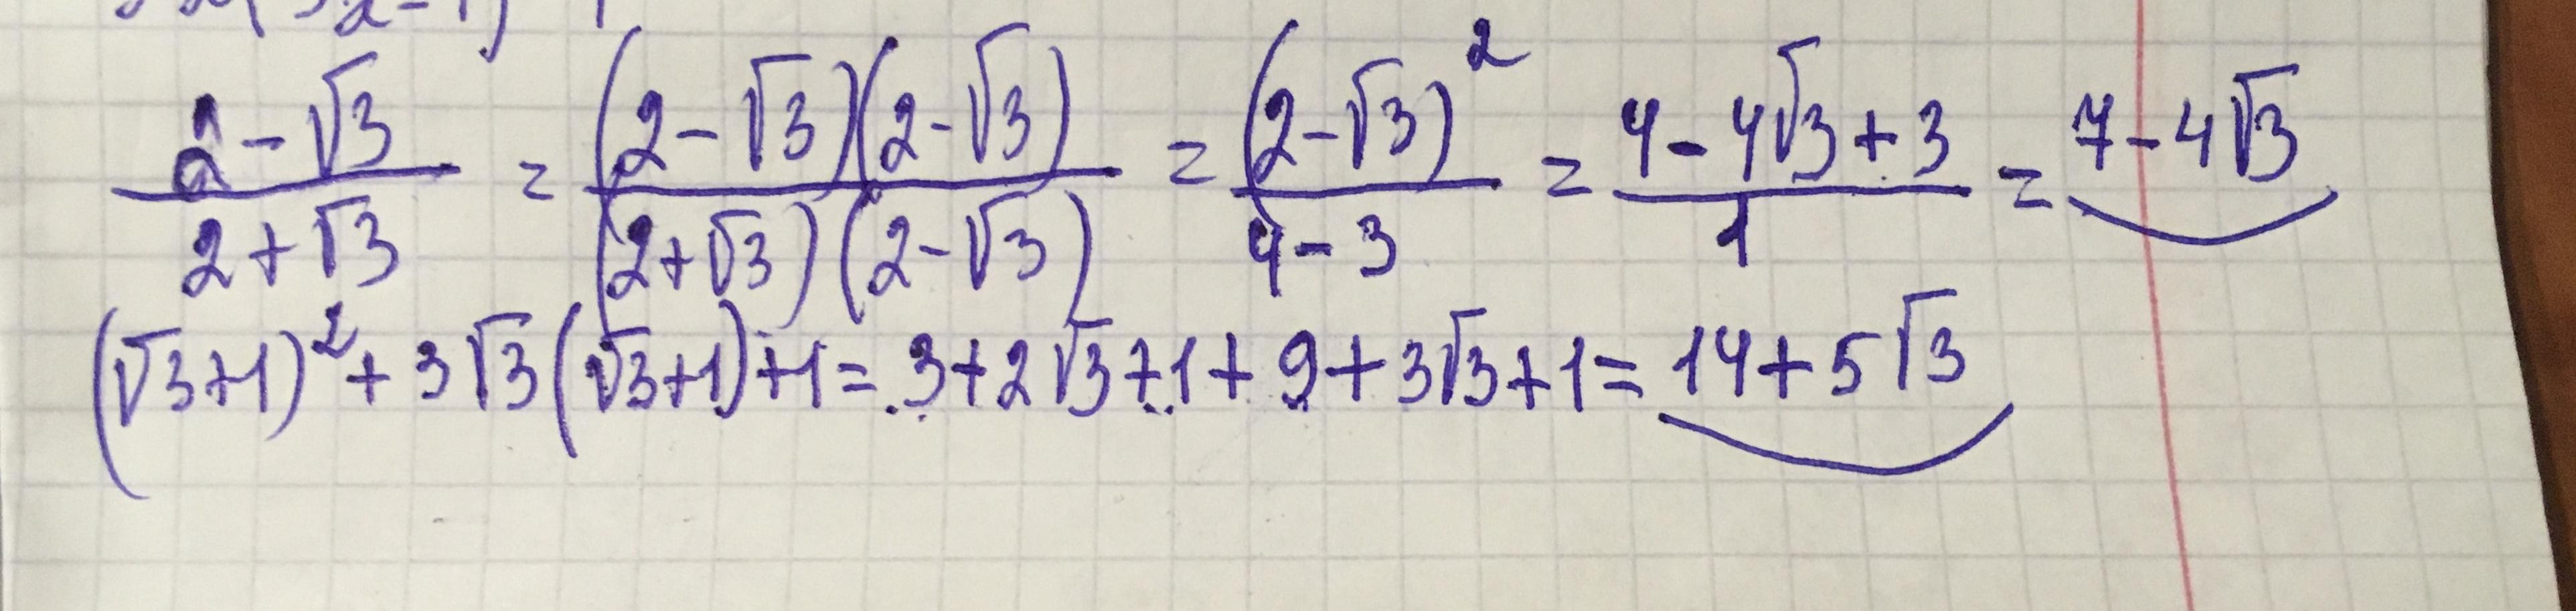 (2-√3)/(2+√3) = ((2-√3)(2-√3))/((2+√3)(2-√3)) = (2-√3)²/(4-3) = (4-4√3+3)/1 = 7-4√3
(√3+1)²+3√3(√3+1)+1=3+2√3+1+9+3√3+1=14+5√3